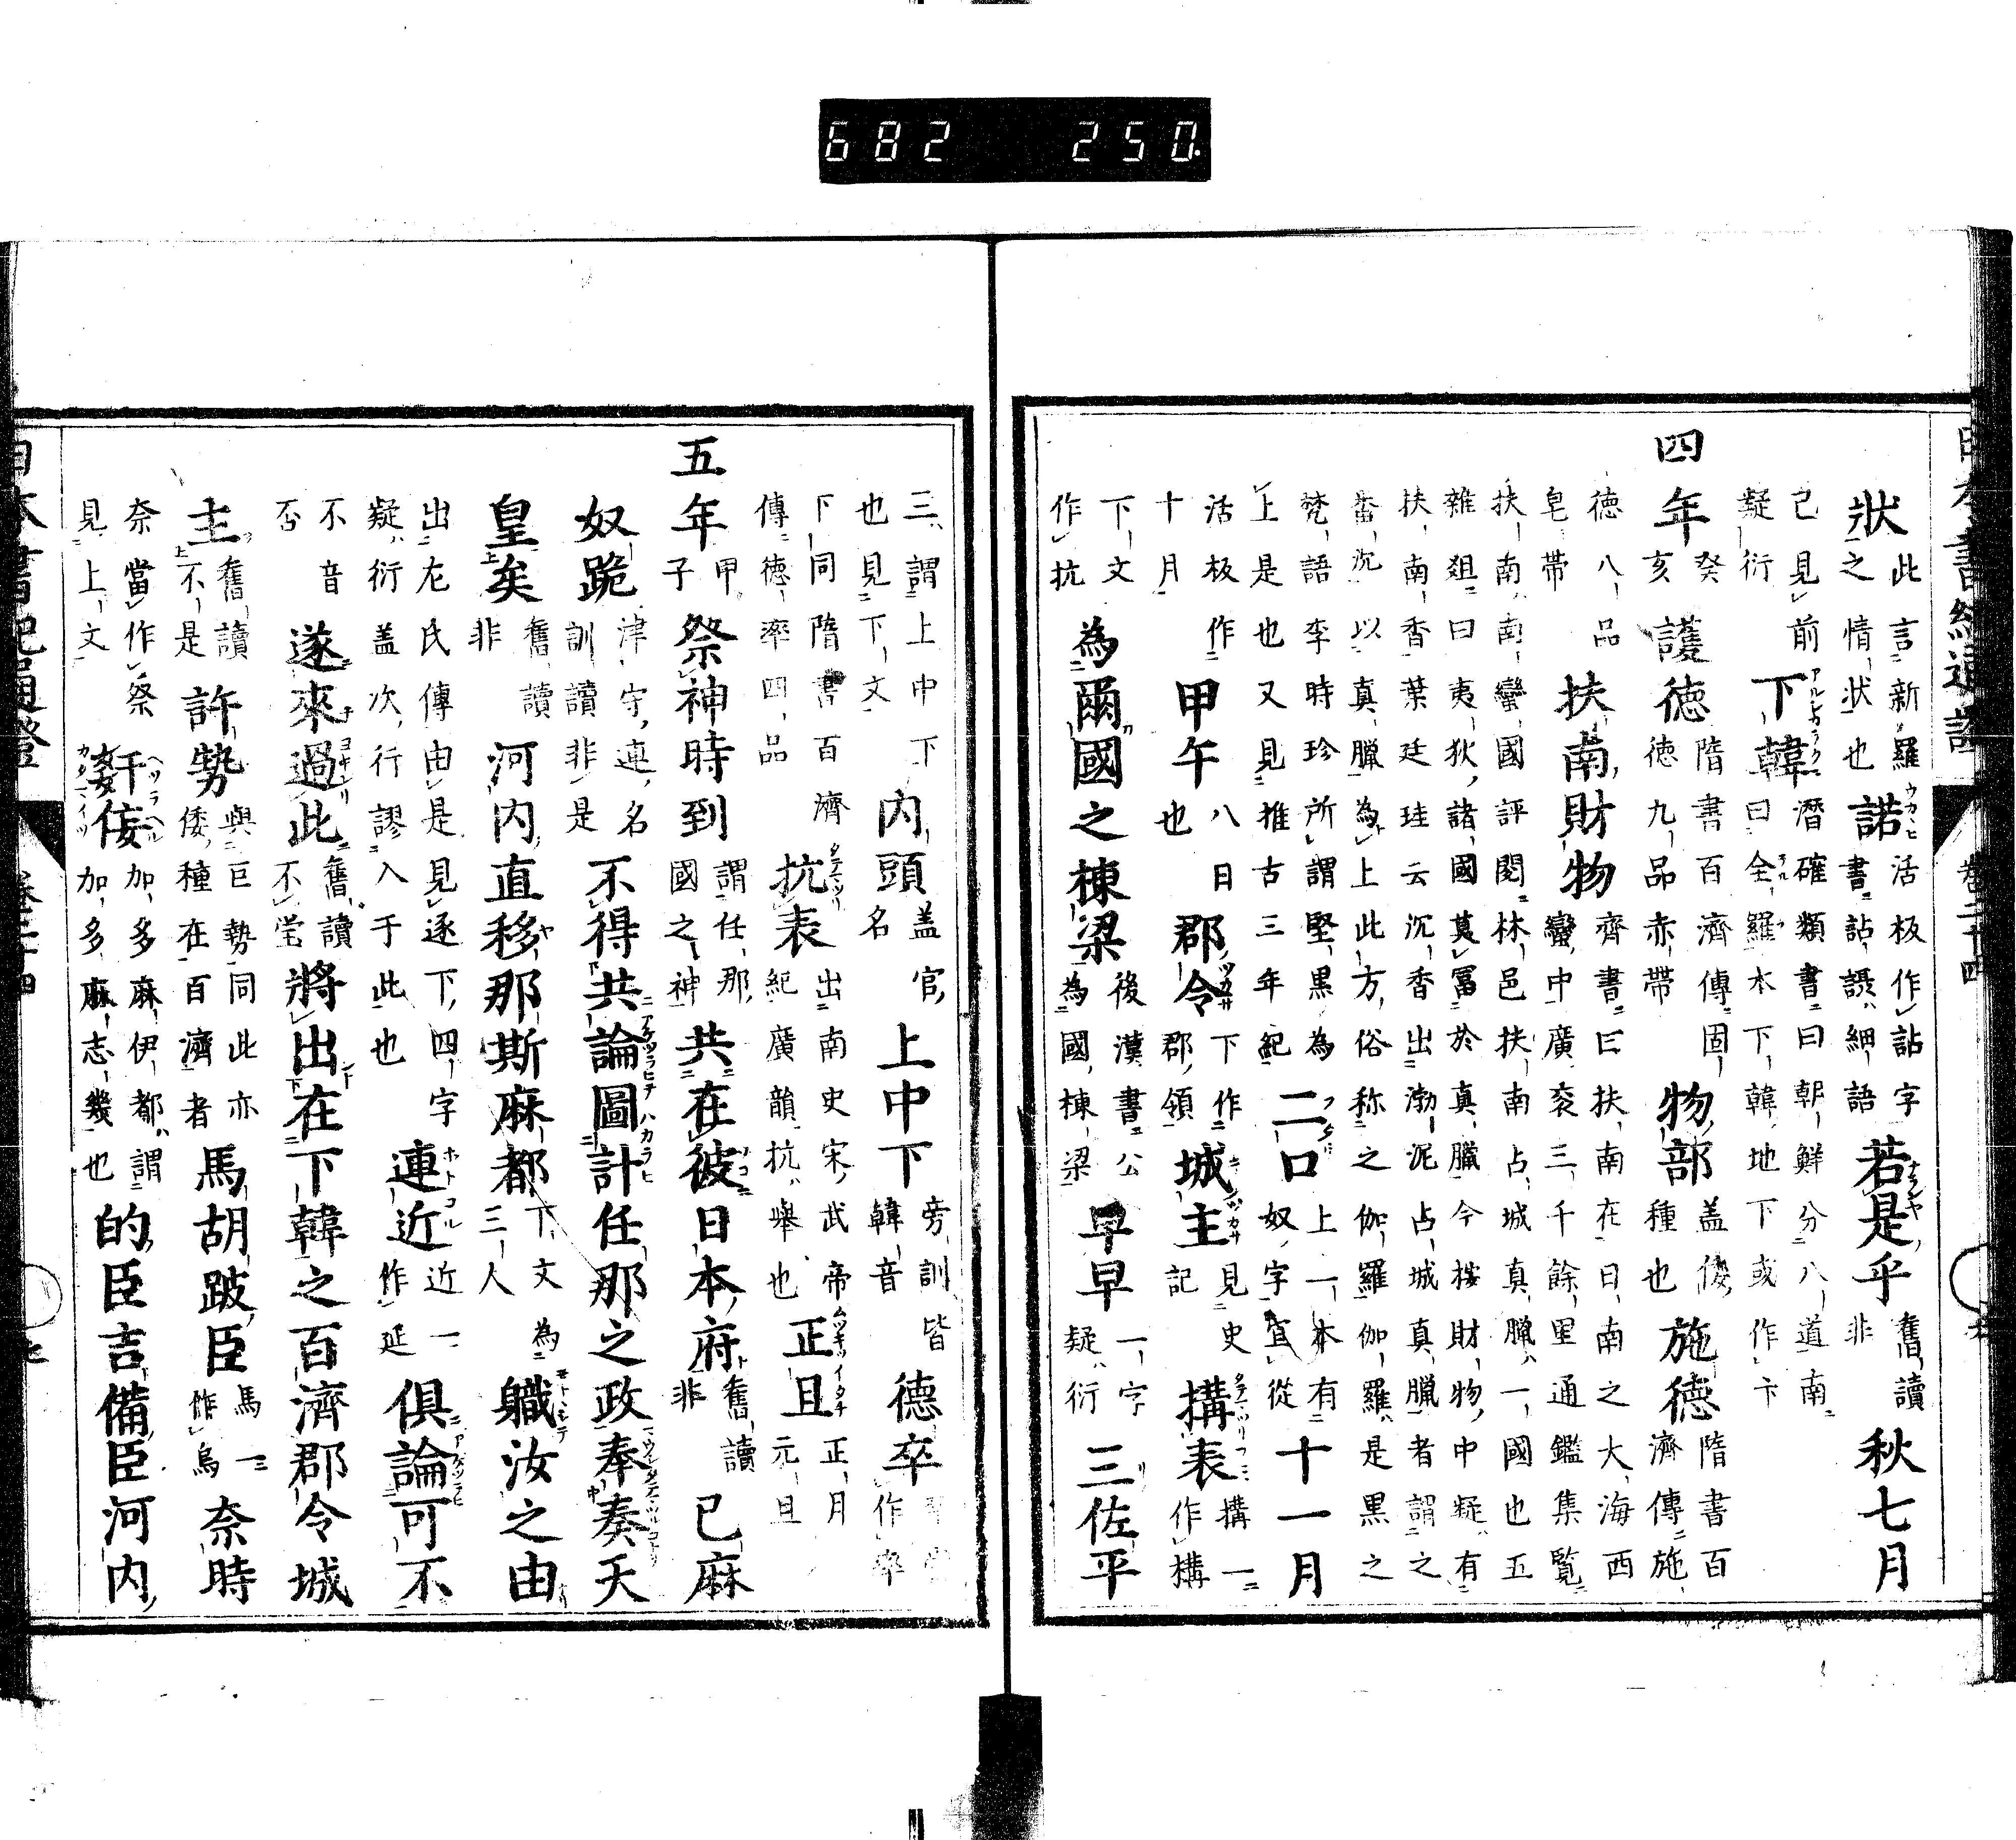 682 250
日本書紀通證 卷二十四
狀此言新羅之情狀也諾活板作詀字書詀讘細語若是乎舊讀非秋七月
己見前疑衍下韓潛確類書曰朝鮮分八道南曰全羅本下韓地下或作卞
四年癸亥護德隋書百濟傳固德九品赤帶物部盖倭種也施德隋書百濟傳施
德八品皂帶扶南財物齊書曰扶南在日南之大海西蠻中廣袤三千餘里通鑑集覧
扶南南蠻國評閱林邑扶南占城真臘一國也五雜爼曰夷狄諸國莫冨於真臘今按財物中疑有
扶南香葉廷珪云沉香出渤泥占城真臘者謂之番沉以真臘為上此方俗称之伽羅伽羅是黒之
梵語李時珍所謂堅黒為上是也又見推古三年紀二口上一本有奴字宜從十一月
活板作十月甲午八日也郡令下作郡領城主見史記搆表搆一作構
下文作抗為爾國之棟梁後漢書公為國棟梁早早一字疑衍三佐平
三謂上中下也見下文內頭盖官名上中下旁訓皆韓音德卒作率
下同隋書百濟傳德率四品抗表出南史宋武帝紀廣韻抗舉也正旦正月元旦
五年甲子祭神時到謂任那國之神共在彼日本府舊讀非已麻
奴跪津守連名訓讀非是不得共論圖計任那之政奉奏天
皇矣舊讀非河内直移那斯麻都下文為三人軄汝之由
出左氏傳由是見逐下四字疑衍盖次行謬入于此也連近近一作延俱論可不
不音否遂來過此舊讀不瑩將出在下韓之百濟郡令城
主舊讀不是許勢與巨勢同此亦倭種在百濟者馬胡跛臣馬一作烏奈時
奈當作祭見上文姧佞加多麻伊都謂加多麻志幾也的臣吉備臣河内
日本書紀通證